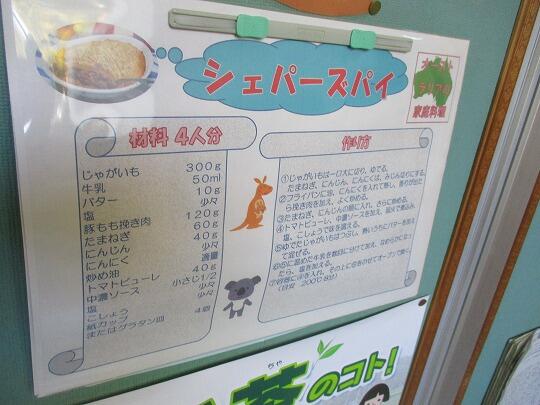 シェパーズパイ
オースト
ラリアの
家庭料理
材料 4人分
じゃがいも 300g
牛乳 50ml
バター 10g
塩 少々
豚もも挽き肉 120g
たまねぎ 60g
にんじん 40g
にんにく 少々
炒め油 適量
トマトピューレ 40g
中濃ソース 小さじ1/2
塩 少々
こしょう 少々
紙カップ 4個
またはグラタン皿
作り方
①じゃがいもは一口大に切り、ゆでる。
たまねぎ、にんじん、にんにくは、みじん切りにする。
②フライパンに油、にんにくを入れて熱し、香りが出た
ら挽き肉を加え、よく炒める。
③たまねぎ、にんじんの順に入れ、さらに炒める。
④トマトピューレ、中濃ソースを加え、弱火で煮込み、
塩、こしょうで味を整える。
⑤ゆでたじゃがいもはつぶし、熱いうちにバターを加え
て混ぜる。
⑥⑤に温めた牛乳を数回に分けて加え、なめらかになっ
たら、塩を加える。
⑦容器に④を入れ、その上に⑥をのせてオーブンで焼く。
(目安 200℃ 8分)
ちゃ
茶のコト!